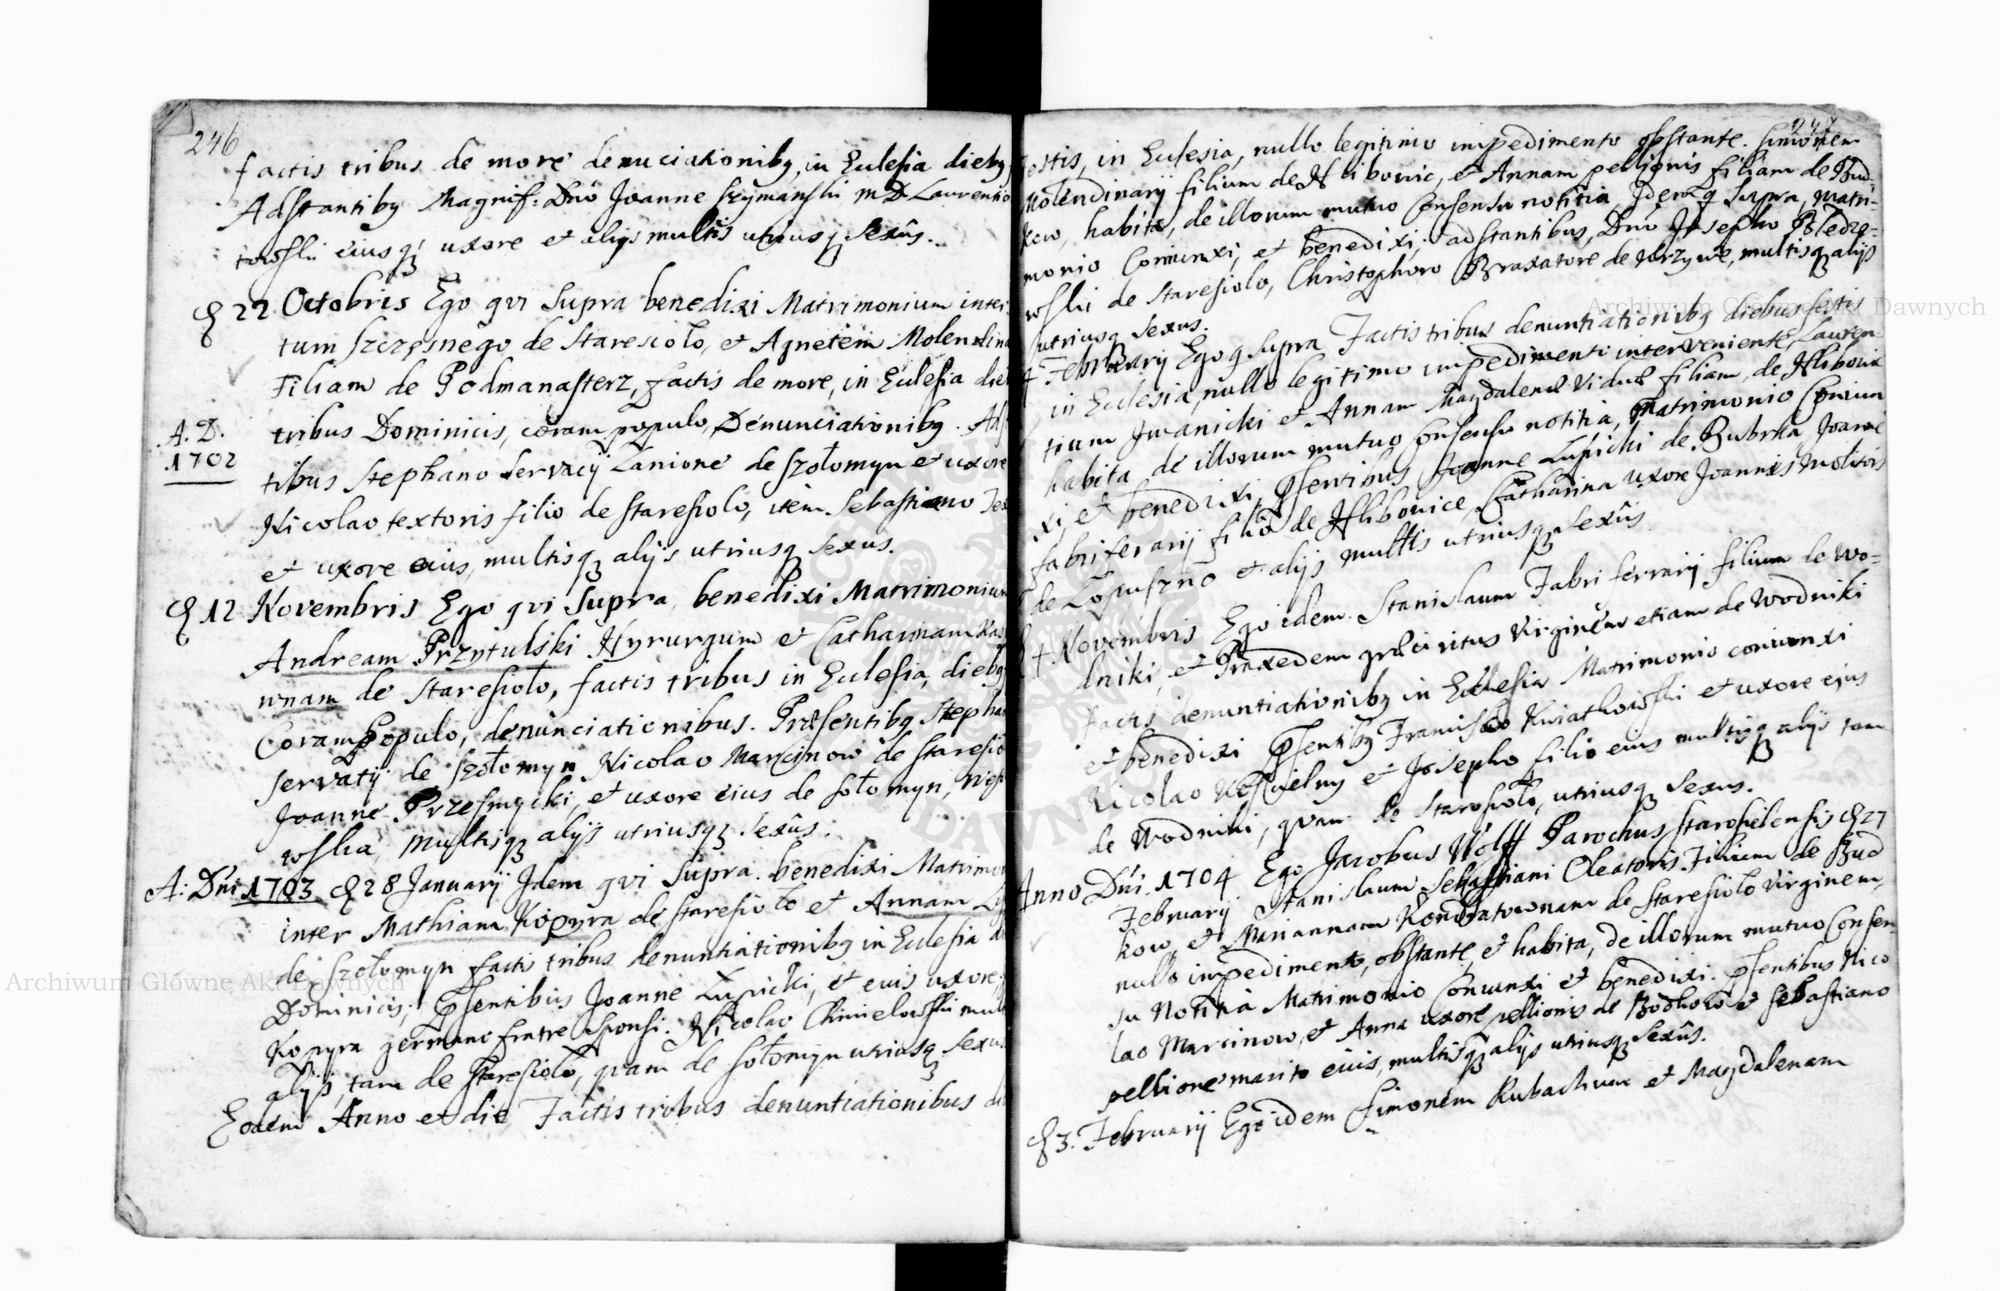 246
factis tribus de more denuciationibq, in Eclesia diebq
Adstantibq Magnif: Dno Joanne Szymanski M D Laurentio
towski eiusq uxore et alijs multis utriusq Sexûs.
d 22 Octobris Ego qvi Supra benedixi Matrimonium inter
tum Szczęsnego de Staresioło, et Agnetem Molendina
Filiam de Podmanasterz, factis de more, in Eclesia die
A. D.
1702
tribus Dominicis, coram populo, Denunciationibq. Ads
tibus Stephano Servacij Lanione de Szołomyn et uxore
Nicolao textoris filio de Staresiolo, item Sebastiano Tex
et uxore eius, multisq alijs utriusq Sexus.
d 12 Novembris Ego qvi Supra benedixi Matrimonium
Andream Przytulski Hyrurgum et Catharinam Kas
wnam de Staresioło, factis tribus in Eclesia, diebq
Coram Populo, denunciationibus. Præsentibq Stepha
Servatij de Szołomyn Nicolao Marcinow de Staresio
Joanne Przesmycki, et uxore eius de Sołomyn,
wska, multisq alijs utriusq Sexûs.
A: Dni 1703 d 28 Januarij Idem qvi Supra benedixi Matrimo
inter Mathiam Kopyra de Staresioło et Annam
de Szołomyn factis tribus denuntiationibq in Eclesia
Dominicis, psentibus Joanne Lupicki, et euis uxore,
Kopyra germano fratre Sponsi. Nicolao Chmielowski mult
alijs, tam de Staresioło, qvam de Sołomyn utriusq Sexus
Eodem Anno et die Factis tribus denuntiationibus di
247
estis, in Eclesia, nullo legitimo impedimento obstante. Simonem
Molendinarij filium de Hlibowic, et Annam pellionis filiam de Bud
kow, habita, de illorum mutuo Consensu notitia, Idem q Supra, Matri-
monio Coniunxi, et benedixi, adstantibus, Dno Josepho Bledzo-
wski de Staresiolo, Christophoro Braxatore de, multisq alijs
utriusq Sexus.
4 February Ego q Supra Factis tribus denuntiationibq diebus festis
in Eclesia, nullo legitimo impedimento interveniente, Lauren-
tium Jwanicki et Annam Magdalenæ Viduæ filiam, de Hlibowic
habita de illorum mutuo Consensu notitia, Matrimonio Coniun
xi, et benedixi, psentibus Joanne Lupicki de Bubrka Joanne
fabri ferarij filio de Hlibowice, Catharina uxore Joannis Molitoris
de Łopuszno et alijs multis utriusq Sexûs
d 4 Novembris Ego idem Stanislaum Fabri ferrarij filium de Wo-
dniki, et Praxedem græci ritus Virginem etiam de Wodniki
Factis denuntiationibq in Eclesia Matrimonio coniunxi
et benedixi psentibq Francisco Kwiatkowski et uxore ejus
Nicolao Koscielny et Josepho filio eius multisq alijs tam
de Wodniki, qvam de Starosioło, utriusq Sexus.
Anno Dni. 1704 Ego Jacobus Wolff Parochus Starosielensis d 27
February Stanislaum Sebastiani Oleatoris Filium de Bud
kow, et Mariannam Kondratownam de Staresioło Virginem,
nullo impedimento, obstante, et habita, de illorum mutuo Consen-
su Notitia Matrimonio Coniunxi et benedixi. psentibus Nico
lao Marcinow, et Anna uxore pellionis de Budkow et Sebastiano
pellione marito eius, multisq alijs utriusq Sexûs.
d 3. Februarij Ego idem Simonem Rubachum et Magdalenam
Archiwum Główne Akt Dawnych